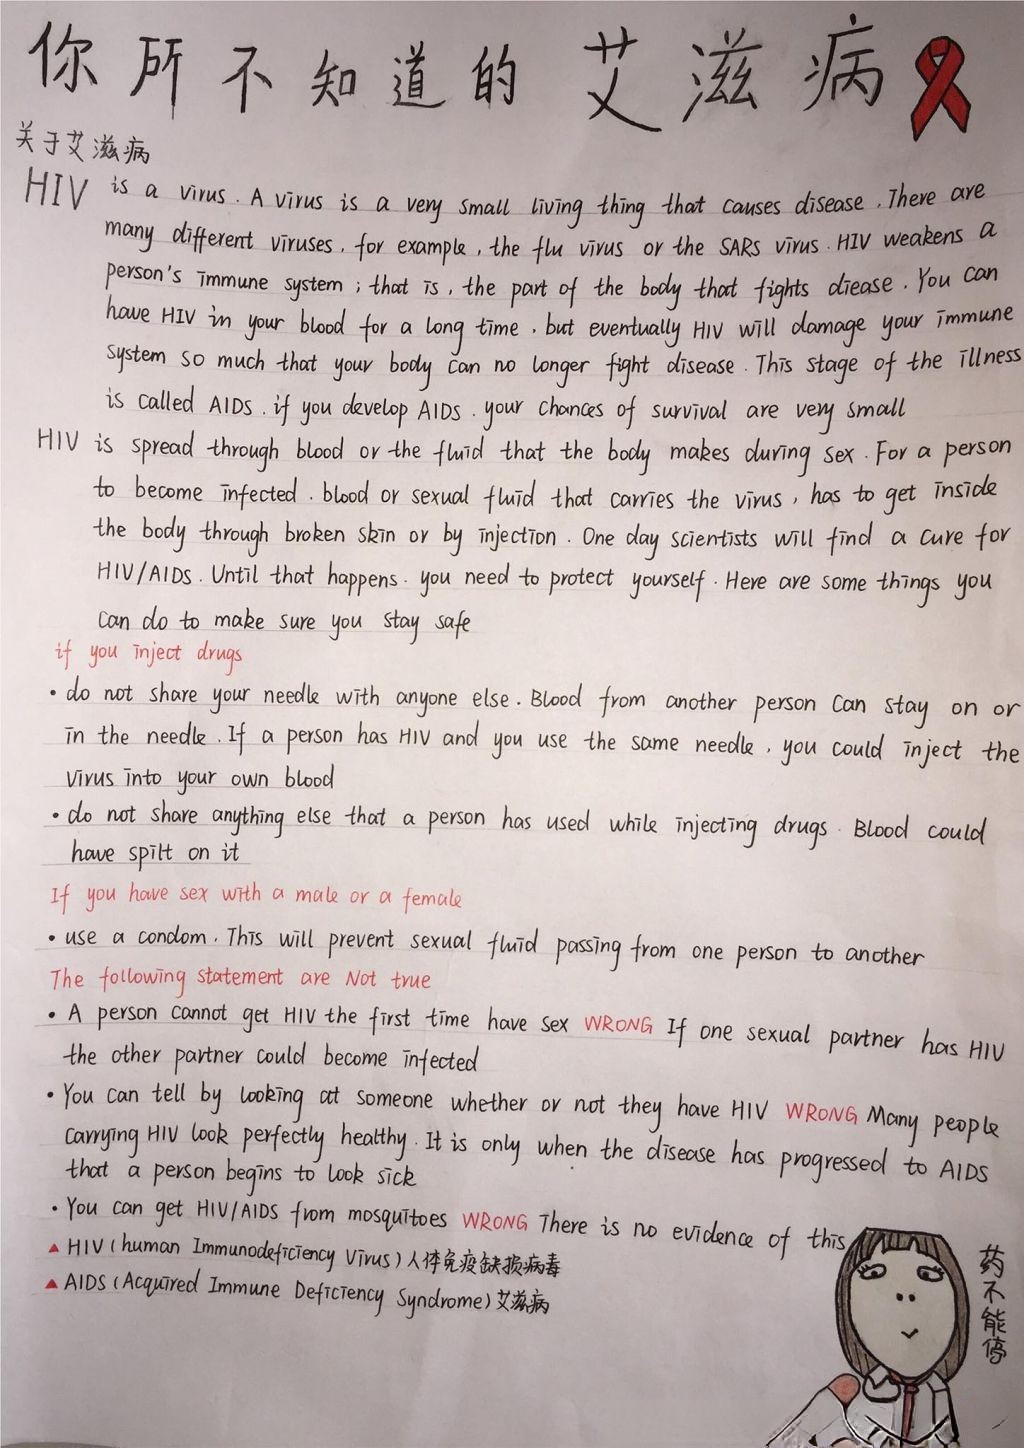 你所不知道的艾滋病
关于艾滋病
HIV is a virus. A virus is a very small living thing that causes disease. There are
many different viruses, for example, the flu virus or the SARs virus. HIV weakens a
person's immune system; that is, the part of the body that fights diease. You can
have HIV in your blood for a long time, but eventually HIV will damage your immune
system so much that your body can no longer fight disease. This stage of the illness
is called AIDS. if you develop AIDS. your chances of survival are very small
HIV is spread through blood or the fluid that the body makes during sex. For a person
to become infected, blood or sexual fluid that carries the virus, has to get inside
the body through broken skin or by injection. One day scientists will find a cure for
HIV/AIDS. Until that happens. you need to protect yourself. Here are some things you
can do to make sure you stay safe
if you inject drugs
• do not share your needle with anyone else. Blood from another person can stay on or
in the needle. If a person has HIV and you use the same needle, you could inject the
virus into your own blood
• do not share anything else that a person has used while injecting drugs. Blood could
have spilt on it
If you have sex with a male or a female
• use a condom. This will prevent sexual fluid passing from one person to another
The following statement are Not true
• A person cannot get HIV the first time have sex WRONG If one sexual partner has HIV
the other partner could become infected
• You can tell by looking at someone whether or not they have HIV WRONG Many people
carrying HIV look perfectly healthy. It is only when the disease has progressed to AIDS
that a person begins to look sick
• You can get HIV/AIDS from mosquitoes WRONG There is no evidence of this
▲ HIV (human Immunodeficiency Virus) 人体免疫缺损病毒
▲ AIDS (Acquired Immune Deficiency Syndrome) 艾滋病
药不能停